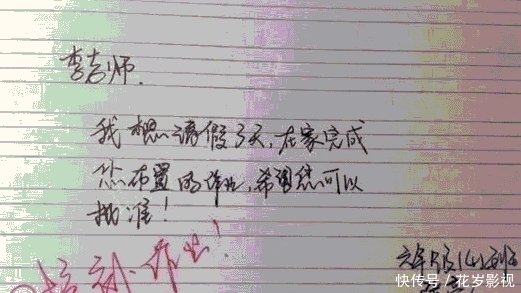 李老师.
我想请假3天,在家完成
您布置的作业,希望您可以
批准!
六年级(4)班
快传号/花岁影视